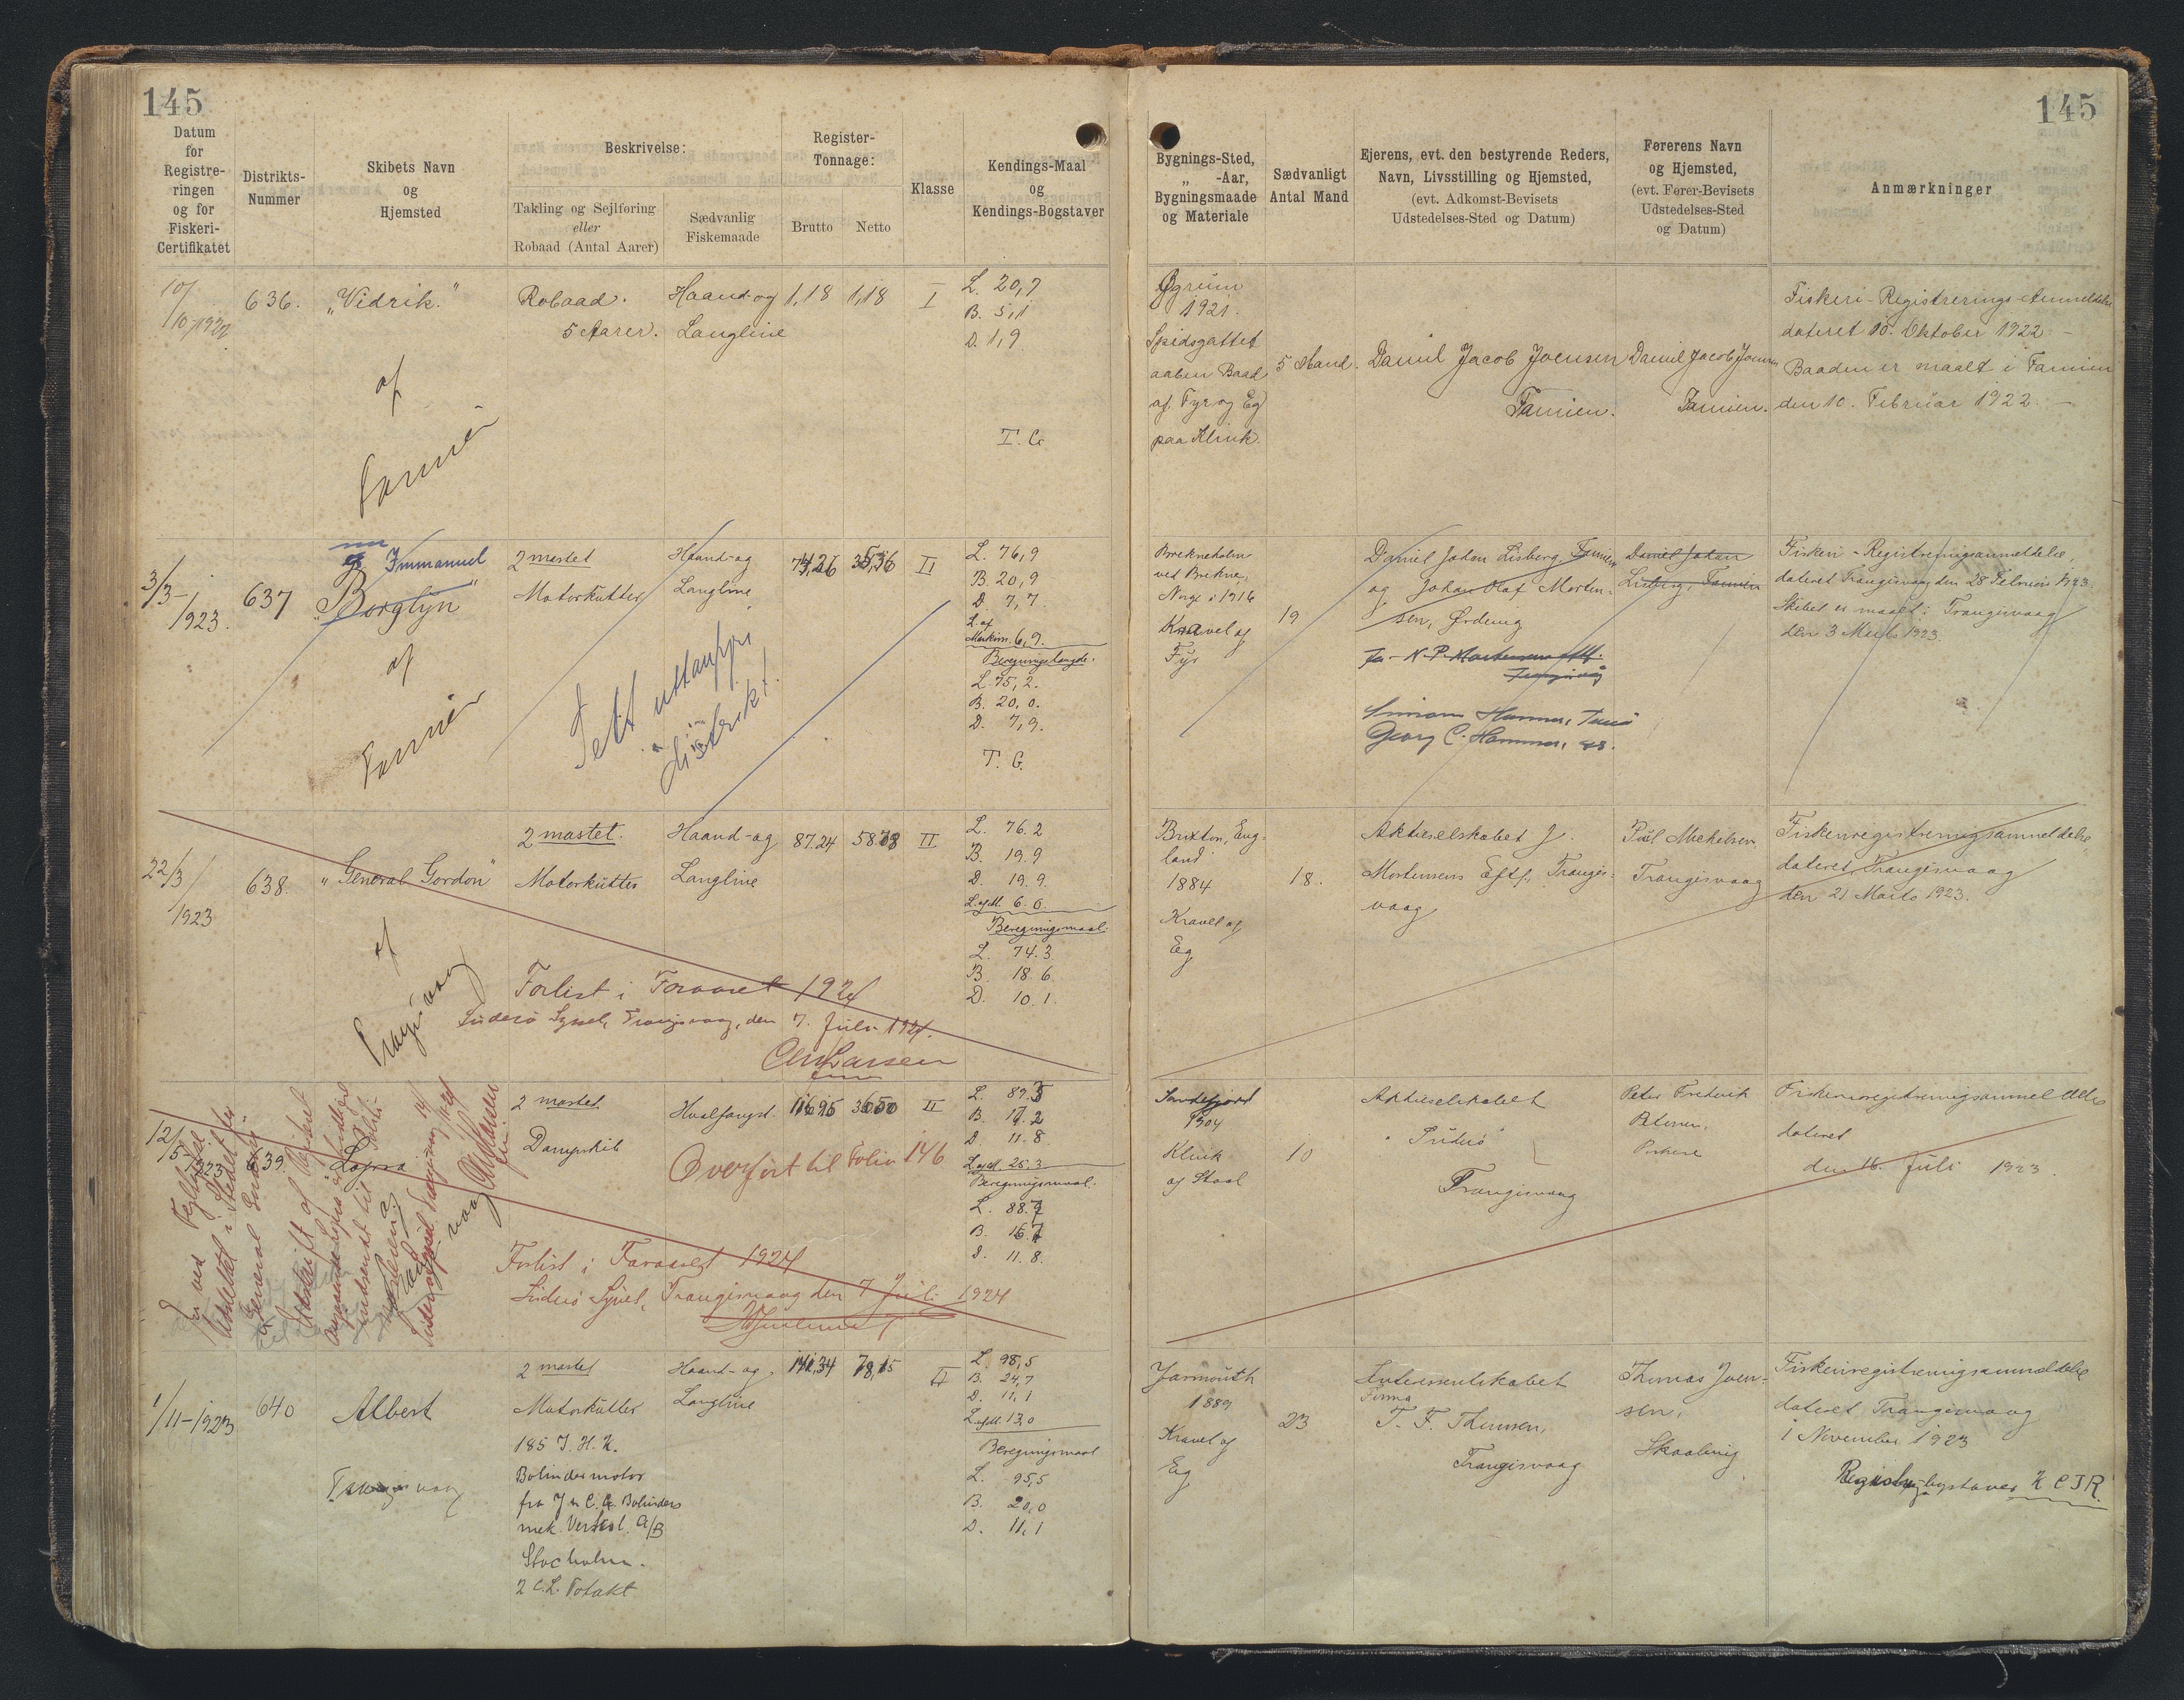 145
145
Datum
for
Registre-
ringen
og for
Fiskeri-
Certifikatet
Distrikts-
Nummer
Skibets Navn
og
Hjemsted
Beskrivelse:
Takling og Sejlføring
eller
Robaad (Antal Aarer)
Sædvanlig
Fiskemaade
Register-
Tonnage:
Brutto
Netto
Klasse
Kendings-Maal
og
Kendings-Bogstaver
Bygnings-Sted,
„ -Aar,
Bygningsmaade
og Materiale
Sædvanligt
Antal Mand
Ejerens, evt. den bestyrende Reders,
Navn, Livsstilling og Hjemsted,
(evt. Adkomst-Bevisets
Udstedelses-Sted og Datum)
Førerens Navn
og Hjemsted,
(evt. Fører-Bevisets
Udstedelses-Sted
og Datum)
Anmærkninger
10/
10/1922
636.
„Vidrik."
af
Famien
Robaad.
5 Aarer.
Haand- og
Langline
1,18
1,18
I
L. 20,7
B. 5,1
D. 1,9
T. G
Øgrum
1921.
Spidsgattet
aaben Baad
af Fyr og Eg
paa Klink.
5 Mand.
Daniel Jacob Joensen
Famien.
Daniel Jacob Joensen
Famien.
Fiskeri-Registrerings-Anmeldelse
dateret 10. Oktober 1922 –
Baaden er maalt i Famien
den 10. Februar 1922. –
3/3–
1923.
637
nu
Immanuel
„Borglyn"
af
Famien
2 mastet
Motorkutter
Haand- og
Langline
II
Slett uttanfyri
distrikt!
L. 76,9
B. 20,9
D. 7,7.
L. af
Maskinr. 6,9.
Beregningslængde.
L. 75,2.
B. 20,0.
D. 7,9.
T. G.
Brekneholm
ved Brekne,
Norge i 1916
Kravel af
Fyr
19
Daniel Johan Lisberg, Famien
og Johan Olaf Morten-
sen, Ørdevig
Simon Hammer,
Georg C. Hammer,
Daniel Johan
Lisberg, Famien
Fiskeri-Registreringsanmeldelse,
dateret Trangisvaag den 28 Februar 1923.
Skibet er maalt i Trangisvaag
den 3 Marts 1923.
22/3/
1923
638.
„General Gordon"
af
Trangisvaag
2 mastet.
Motorkutter
Haand- og
Langline
87.24
II
Forlist i Foraaret 1924
Suderø Syssel, Trangisvaag, den 7. Juli 1924.
L. 76.2
B. 19.9
D. 19.9.
L. af M. 6.0.
Beregningsmaal:
L. 74.3
B. 18.6
D. 10.1.
Brixton, Eng-
land
1884
Kravel af
Eg
18.
Aktieselskabet J.
Mortensens Eftf., Trangis-
vaag
Poul Michelsen
Trangisvaag
Fiskeriregistreringsanmeldelse,
dateret Trangisvaag
den 21 Marts 1923.
12/
5-1923
639.
Lopra
2 mastet
Dampskib
Hvalfangst.
II
Overført til Folio 146
Forlist i Foraaret 1924
Suderø Syssel, Trangisvaag den 7 Juli 1924
B. 17.2
D. 11.8
L. af M. 25.3
Beregningsmaal.
L. 88.7
B. 16.7
D. 11.8.
Sandefjord
1904
Klink
af Staal
10
Aktieselskabet
"Suderø"
Trangisvaag
Peter Frederik
Petersen,
Porkere
Fiskeriregistreringsanmeldelse
dateret
den 16. Juli 1923.
1/11–1923
640
Albert
Trangisvaag
2 mastet
Motorkutter
185 I. H. K.
Bolindermotor
fra J & C. G. Bolinders
mek. Verkst. A/B
Stocholm.
2 C.L. Totakt
Haand- og
Langline
141,34
78,15
II
L. 98,5
B. 24,7
D. 11,1
L. af M. 13,0
Beregningsmaal
L. 95,5
B. 20,0
D. 11,1
Yarmouth
1889
Kravel af
Eg
23
Interessentskabet
Firma
T. F. Thomsen,
Trangisvaag
Thomas Joen-
sen,
Skaalevig
Fiskeriregistreringsanmeldelse
dateret Trangisvaag
1 November 1923